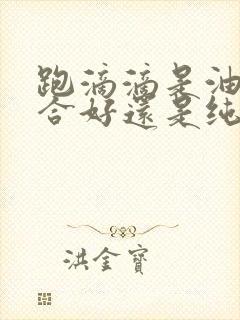 跑滴滴是油
合好還是纯
洪金寶